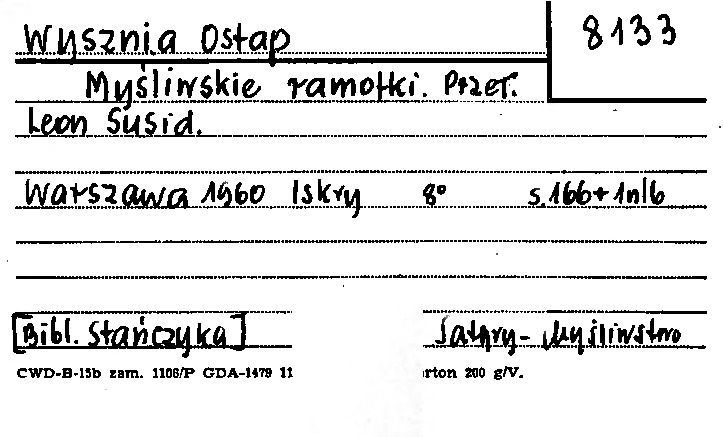 Wysznia Ostap 8133
Myśliwskie ramotki. Przeł.
Leon Susid.
Warszawa 1960 Iskry 8° s.166+1nlb
[Bibl. Stańczyka] Satyry - Myśliwstwo
CWD-B-15b zam. 1106/P GDA-1479 11 rton 200 g/V.